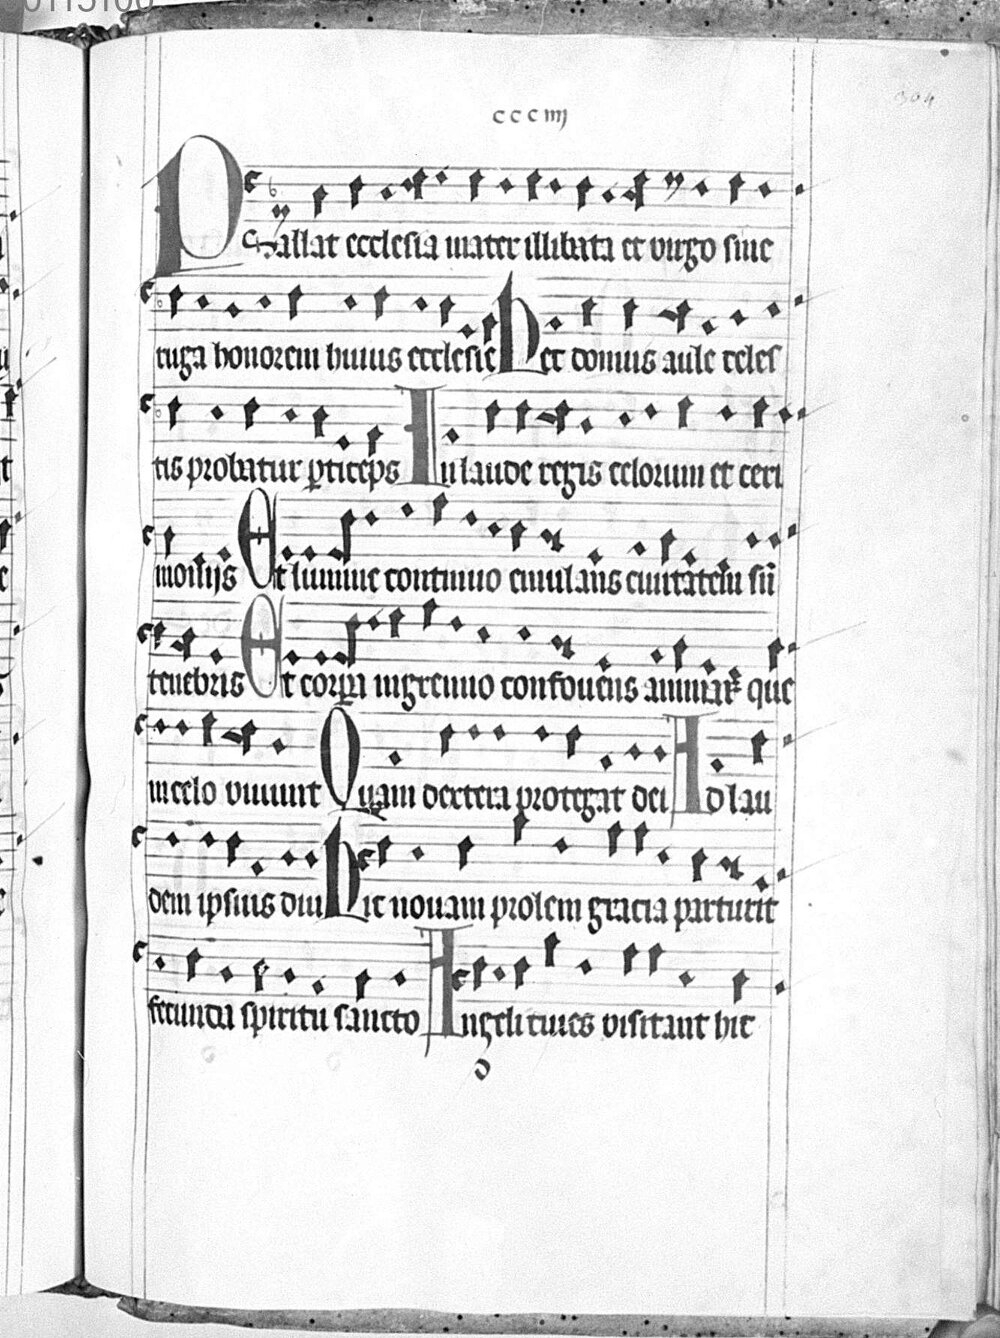 0115100
ccciiij
304
Psallat ecclesia mater illibata et virgo sine
ruga honorem huius ecclesie Hec domus aule celes
tis probatur particeps In laude regis celorum et ceri
monijs Et lumine continuo emulans ciuitatem sine
tenebris Et corpora in gremio confouens animarum que
in celo viuunt Quam dextera protegat dei Ad lau
dem ipsius diu Hic nouam prolem gracia parturit
fecunda spiritu sancto Angeli ciues visitant hic